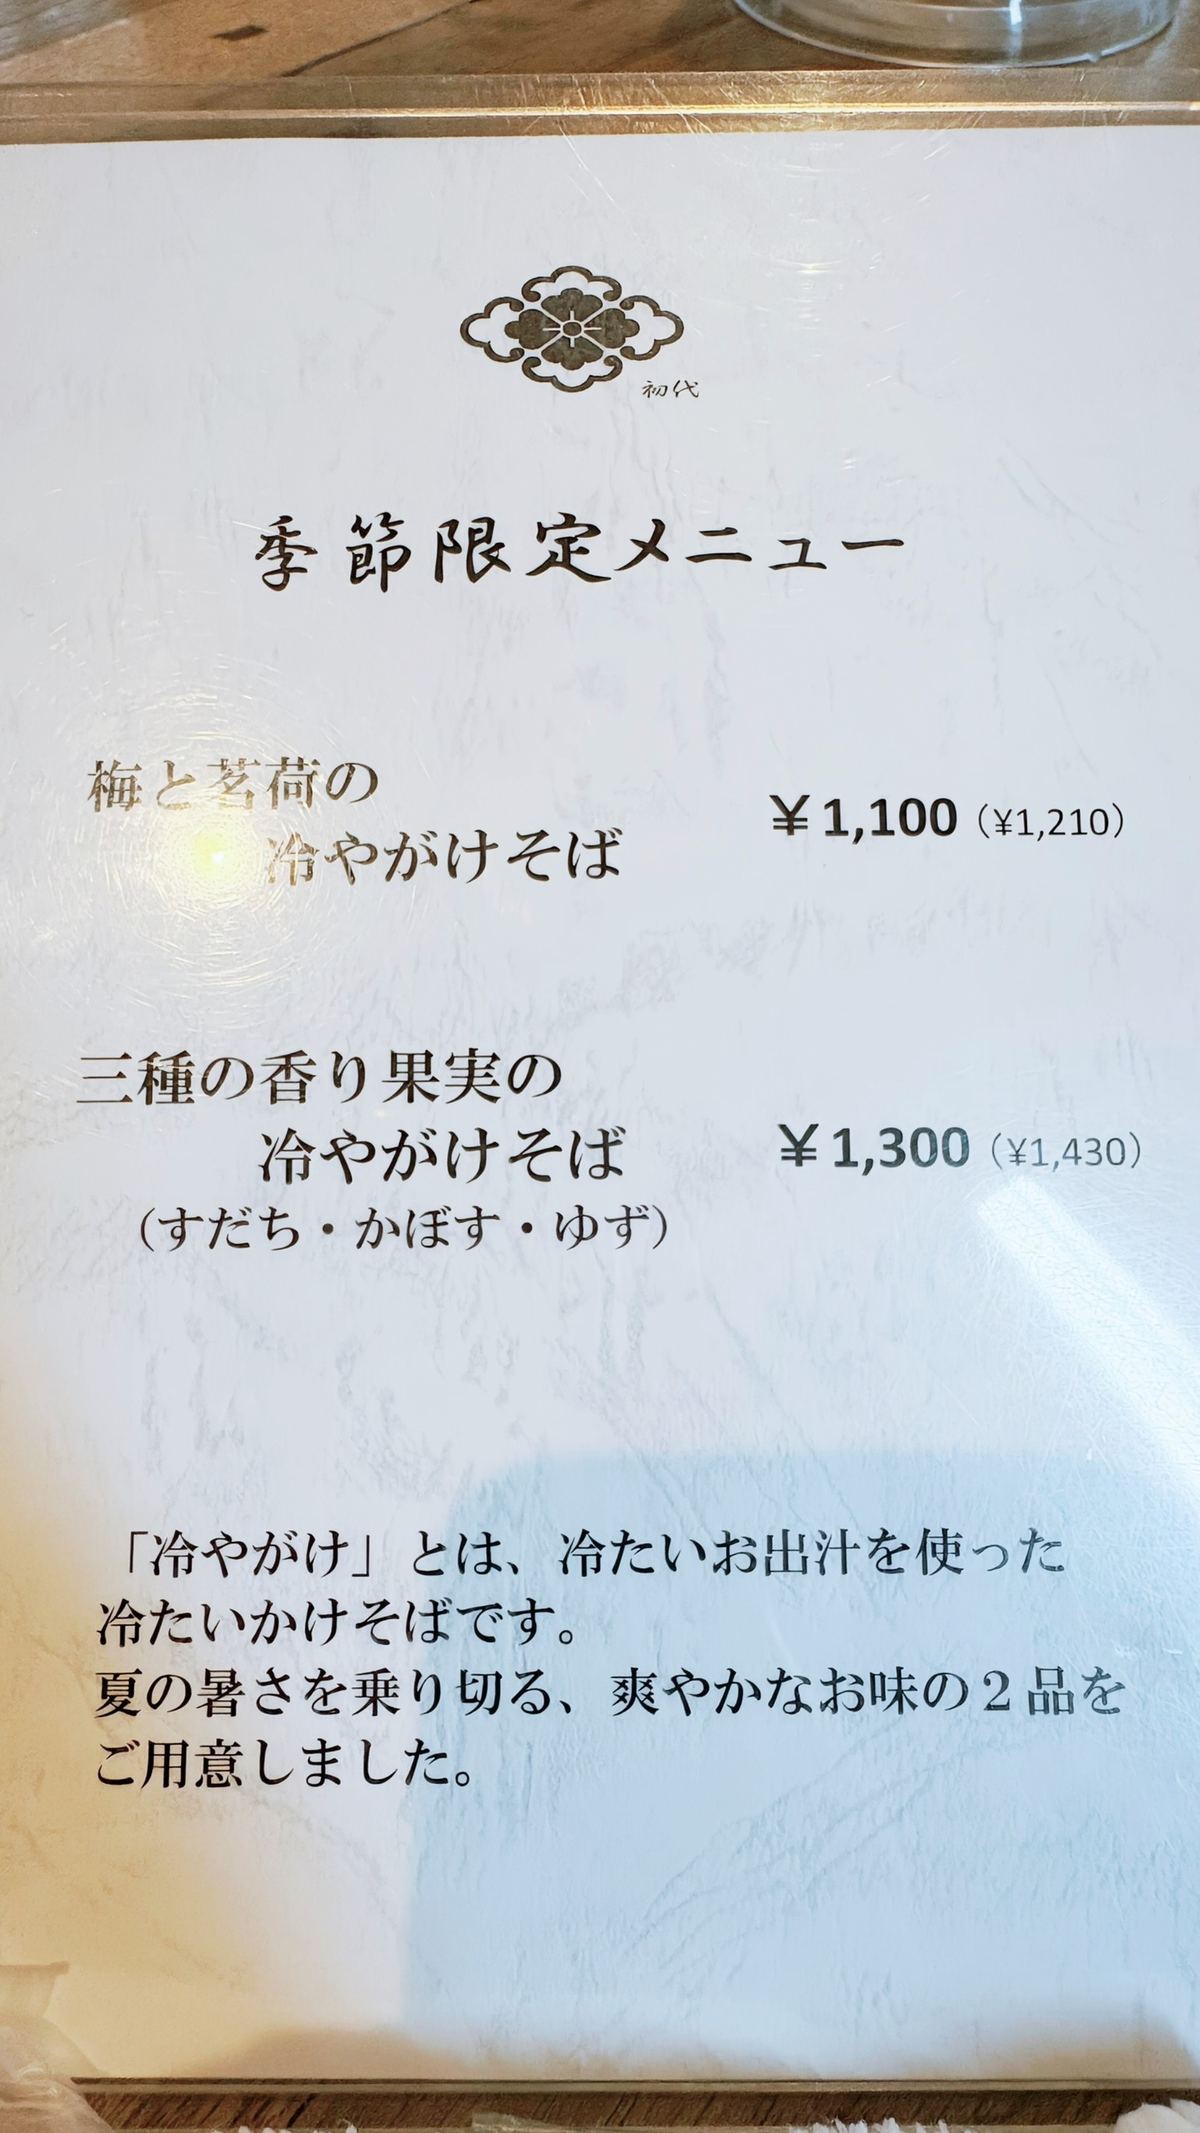 初代
季節限定メニュー
梅と茗荷の
冷やがけそば
￥1,100（¥1,210）
三種の香り果実の
冷やがけそば
（すだち・かぼす・ゆず）
￥1,300（¥1,430）
「冷やがけ」とは、冷たいお出汁を使った
冷たいかけそばです。
夏の暑さを乗り切る、爽やかなお味の２品を
ご用意しました。